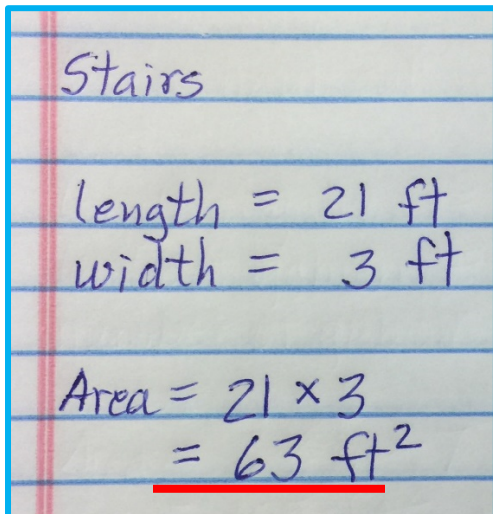 Stairs
length = 21 ft
width = 3 ft
Area = 21 × 3
= 63 ft²